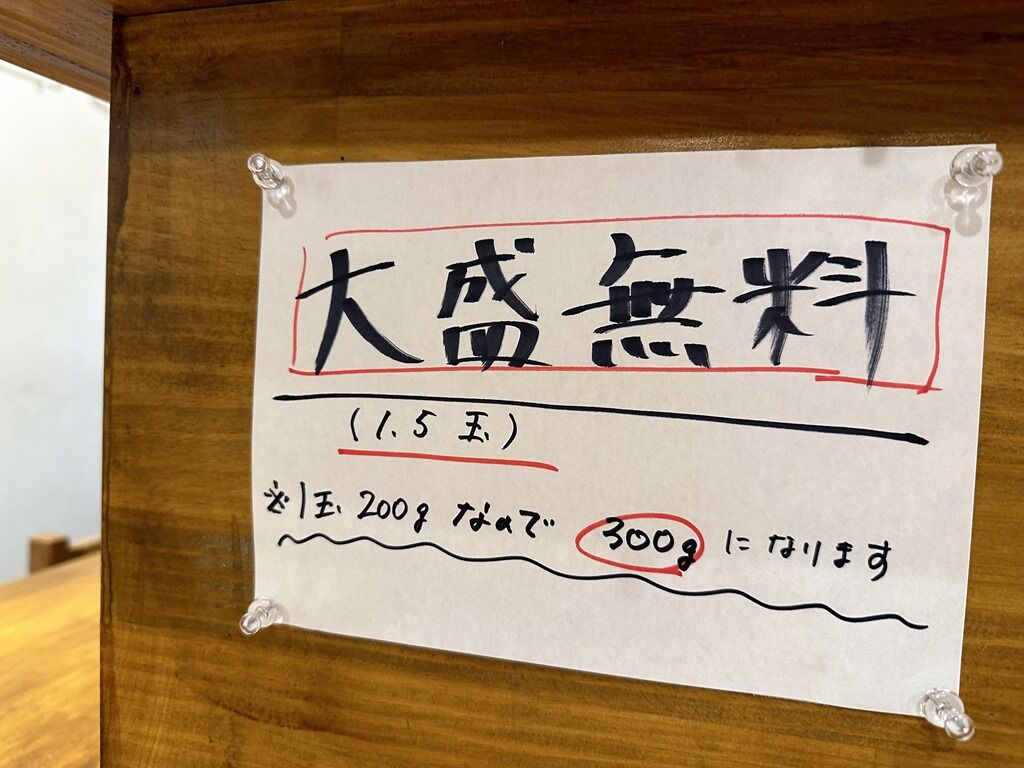 大盛無料
(1.5玉)
※1玉200gなので300gになります